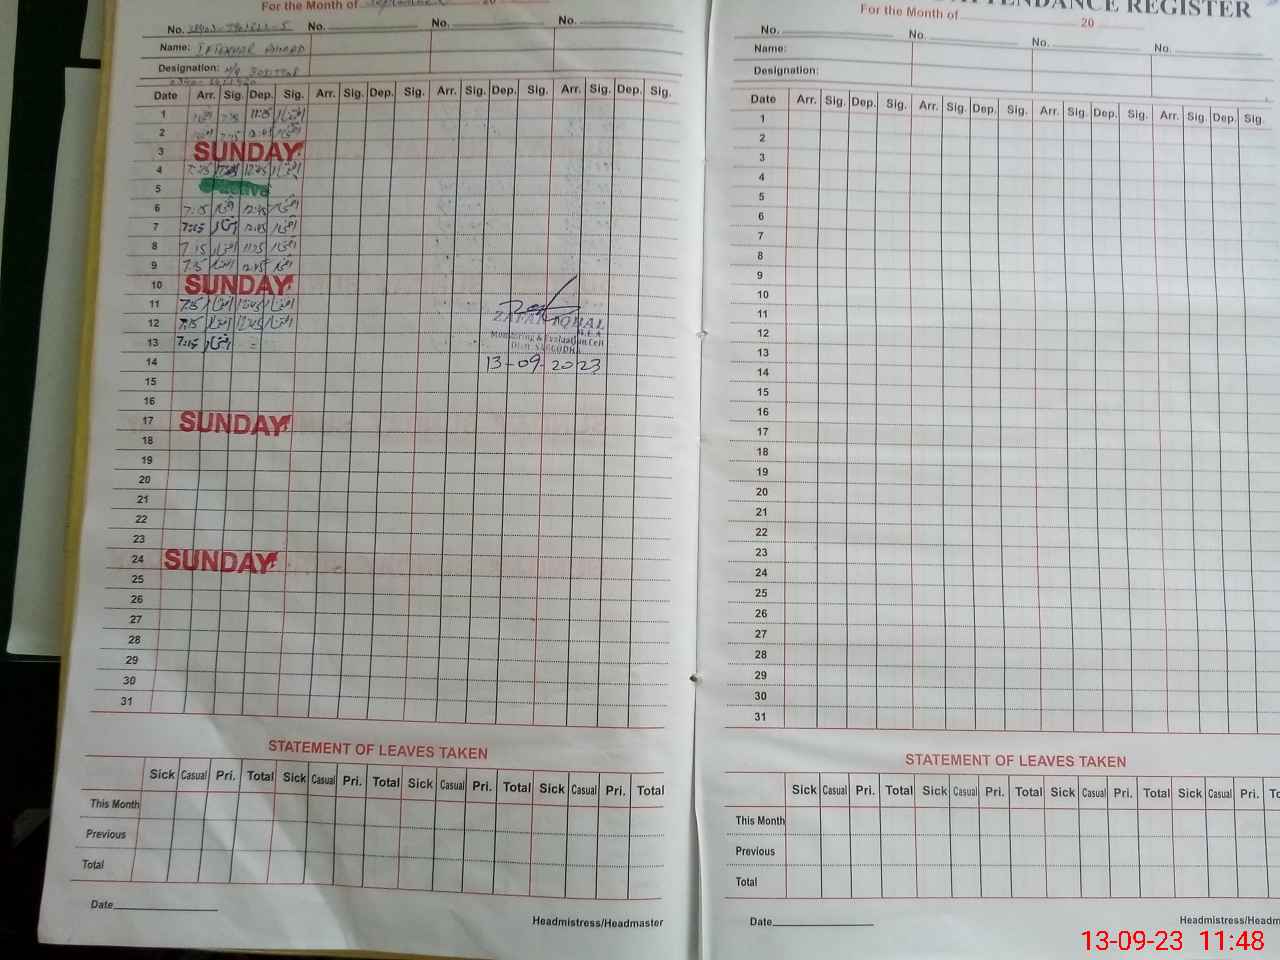 For the Month of September 20
No. No. No. No.
Name: IFTIKHAR AHMAD
Designation:
Date Arr. Sig. Dep. Sig. Arr. Sig. Dep. Sig. Arr. Sig. Dep. Sig. Arr. Sig. Dep. Sig.
1 11:15 افتخار
2 افتخار
3 SUNDAY
4 7:15 12:45 افتخار
5
6 7:15 افتخار 12:45 افتخار
7 7:15 افتخار 12:45 افتخار
8 7:15 افتخار 11:15 افتخار
9 7:15 افتخار 12:45 افتخار
10 SUNDAY
11 7:15 افتخار 12:45 افتخار
12 7:15 افتخار 12:45 افتخار
13 7:15 افتخار
ZAFAR IQBAL
M.E.A
Monitoring & Evaluation Cell
Distt. SARGODHA
13-09-2023
14
15
16
17 SUNDAY
18
19
20
21
22
23
24 SUNDAY
25
26
27
28
29
30
31
STATEMENT OF LEAVES TAKEN
Sick Casual Pri. Total Sick Casual Pri. Total Sick Casual Pri. Total Sick Casual Pri. Total
This Month
Previous
Total
Date
Headmistress/Headmaster
ATTENDANCE REGISTER
For the Month of 20
No. No. No. No.
Name:
Designation:
Date Arr. Sig. Dep. Sig. Arr. Sig. Dep. Sig. Arr. Sig. Dep. Sig. Arr. Sig. Dep. Sig.
1
2
3
4
5
6
7
8
9
10
11
12
13
14
15
16
17
18
19
20
21
22
23
24
25
26
27
28
29
30
31
STATEMENT OF LEAVES TAKEN
Sick Casual Pri. Total Sick Casual Pri. Total Sick Casual Pri. Total Sick Casual Pri. To
This Month
Previous
Total
Date
Headmistress/Headm
13-09-23 11:48